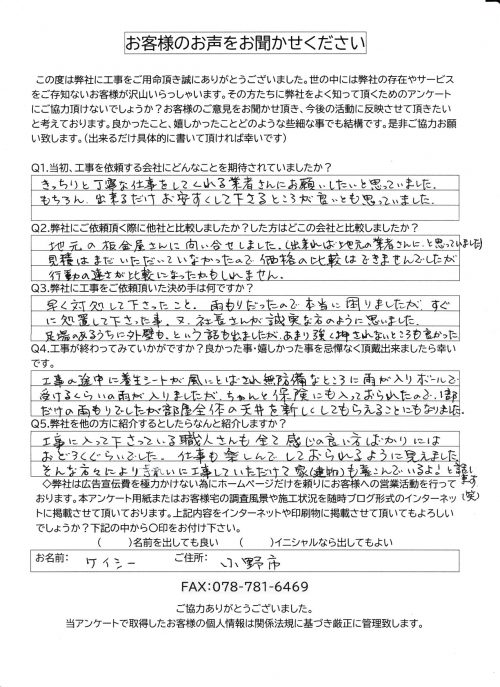 お客様のお声をお聞かせください
この度は弊社に工事をご用命頂き誠にありがとうございました。世の中には弊社の存在やサービス
をご存知ないお客様が沢山いらっしゃいます。その方たちに弊社をよく知って頂くためのアンケート
にご協力頂けないでしょうか？お客様のご意見をお聞かせ頂き、今後の活動に反映させて頂きたい
と考えております。良かったこと、嬉しかったことどのような些細な事でも結構です。是非ご協力お願
い致します。（出来るだけ具体的に書いて頂ければ幸いです）
Q1.当初、工事を依頼する会社にどんなことを期待されていましたか？
きっちりと丁寧な仕事をしてくれる業者さんにお願いしたいと思っていました。
もちろん、出来るだけお安くして下さるところが良いとも思っていました。
Q2.弊社にご依頼頂く際に他社と比較しましたか？した方はどこの会社と比較しましたか？
地元の板金屋さんに問い合せしました。（出来れば地元の業者さんに、と思っていました）
見積はまだいただいていなかったので価格の比較はできませんでしたが
行動の速さが比較になったかもしれません。
Q3.弊社に工事をご依頼頂いた決め手は何ですか？
早く対処して下さったこと。雨もりだったので本当に困りましたが、すぐ
に処置して下さった事。又、社長さんが誠実な方のように思いました。
足場のあるうちに外壁も、という話も出ましたが、あまり強く押されないところも良かった
Q4.工事が終わってみていかがですか？良かった事・嬉しかった事を忌憚なく頂戴出来ましたら幸い
です。
工事の途中に養生シートが風にとばされ無防備なところに雨が入りボールで
受けるくらいの雨が入りましたが、ちゃんと保険にも入っておられたので、1部
だけの雨もりでしたが部屋全体の天井を新しくしてもらえることにもなりました。
Q5.弊社を他の方に紹介するとしたらなんと紹介しますか？
工事に入って下さっている職人さんも全て感じの良い方ばかりには
おどろくぐらいでした。仕事も楽しんでしておられるように見えました。
そんな方々によりきれいに工事していただけて家（建物）も喜こんでいるよ！と話します（笑）
◇弊社は広告宣伝費を極力かけない為にホームページだけを頼りにお客様への営業活動を行って
おります。本アンケート用紙またはお客様宅の調査風景や施工状況を随時ブログ形式のインターネッ
トに掲載させて頂いております。上記内容をインターネットや印刷物に掲載させて頂いてもよろしい
でしょうか？下記の中から〇印をお付け下さい。
（　　）名前を出しても良い　（　　）イニシャルなら出してもよい
お名前：　ケイシー　ご住所：　小野市
FAX：078-781-6469
ご協力ありがとうございました。
当アンケートで取得したお客様の個人情報は関係法規に基づき厳正に管理致します。